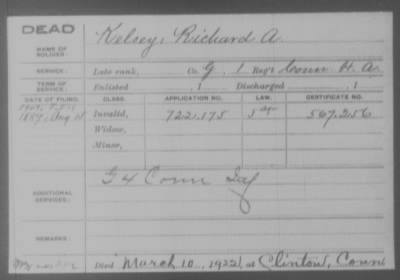 DEAD
NAME OF SOLDIER: Kelsey, Richard A.
SERVICE: Late rank, Co. G, 1 Reg't Conn. H. A.
TERM OF SERVICE: Enlisted , 1 Discharged , 1
DATE OF FILING. CLASS. APPLICATION NO. LAW. CERTIFICATE NO.
1889, Aug Invalid, 722.175 567.256
Widow,
Minor,
ADDITIONAL SERVICES: G 4 Conn Inf
REMARKS:
Died March 10, 1922, at Clinton, Conn